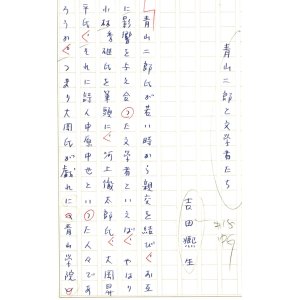 青山二郎と文学者たち
吉田凞生
青山二郎氏が若い時から親交を結び、お互
に影響を与え合つた文学者といえば、やはり
小林秀雄氏を筆頭に、河上徹太郎氏、大岡昇
平氏、それに詩人中原中也といつた人々であ
ろうか。つまり大岡氏が戯れに「青山学院」